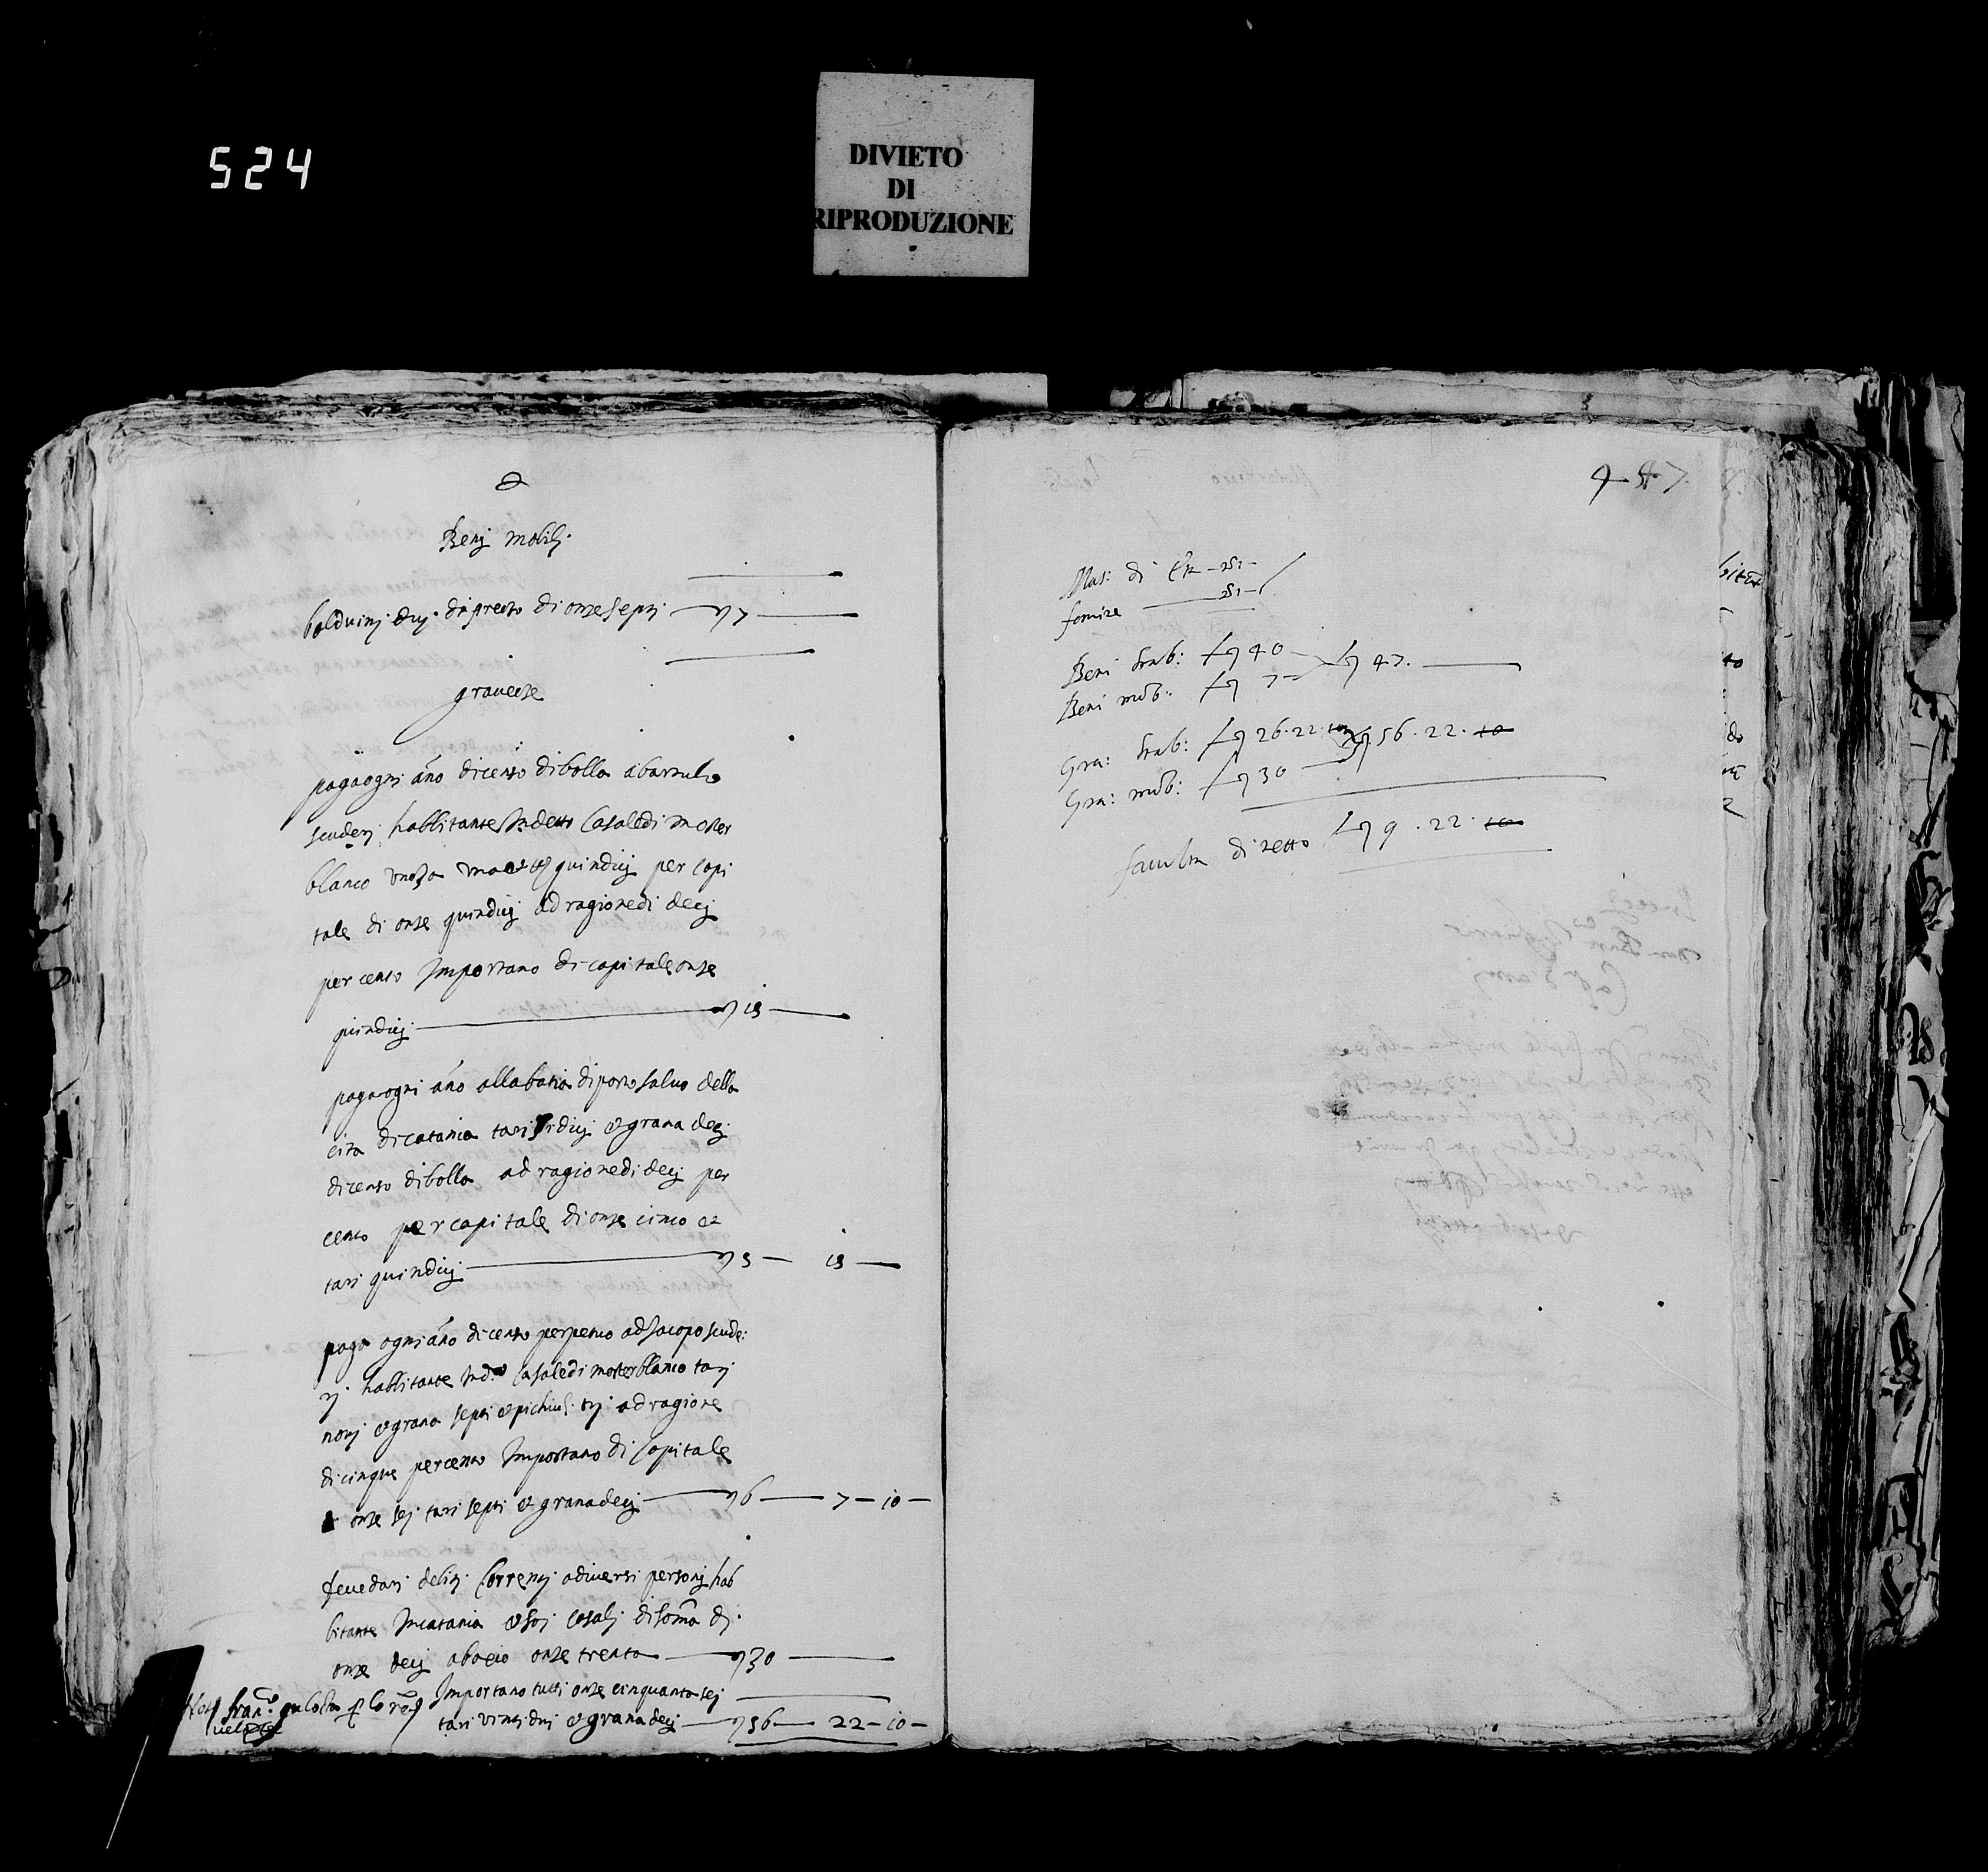 524
DIVIETO
DI
RIPRODUZIONE
Benj mobilj
balduinj duj di preczo di onze septi 7
graveze
paga ogni año di censo di bolla a
scuderi habbitante In detto Casale di moster
blanco unza una et tt quindicj per capi
tale di onze quindicj ad ragione di decj
per cento Importano di capitale onze
quindicj 15
paga ogni año alla batia di porto salvo della
cita di catania tari sidicj et grana decj
di censo di bolla ad ragione di decj per
cento per capitale di onze cinco et
tari quindicj 5 — 15 —
paga ogni año di censo perpetuo ad Jacopo scude:
rj habbitante In d.o Casale di moster blanco tarj
novj et grana septi et pichiuli trj ad ragione
di cinque per cento Importano di Capitale
onze sej tari septi et grana decj 6 — 7 — 10 —
deve dari debiti Correnti a diversi personj hab
bitante In catania et soj casalj di soma dj
onze decj onze trenta 30
Importano tutti onze cinquanta sej
tari vinti duj et grana decj 56 — 22 — 10 —
447
Mas: di
Beni stab: 40 47.
Beni mob: 7
Gra: stab: 26.22.10 56.22.10
Gra: mob: 30
di netto 9.22.10